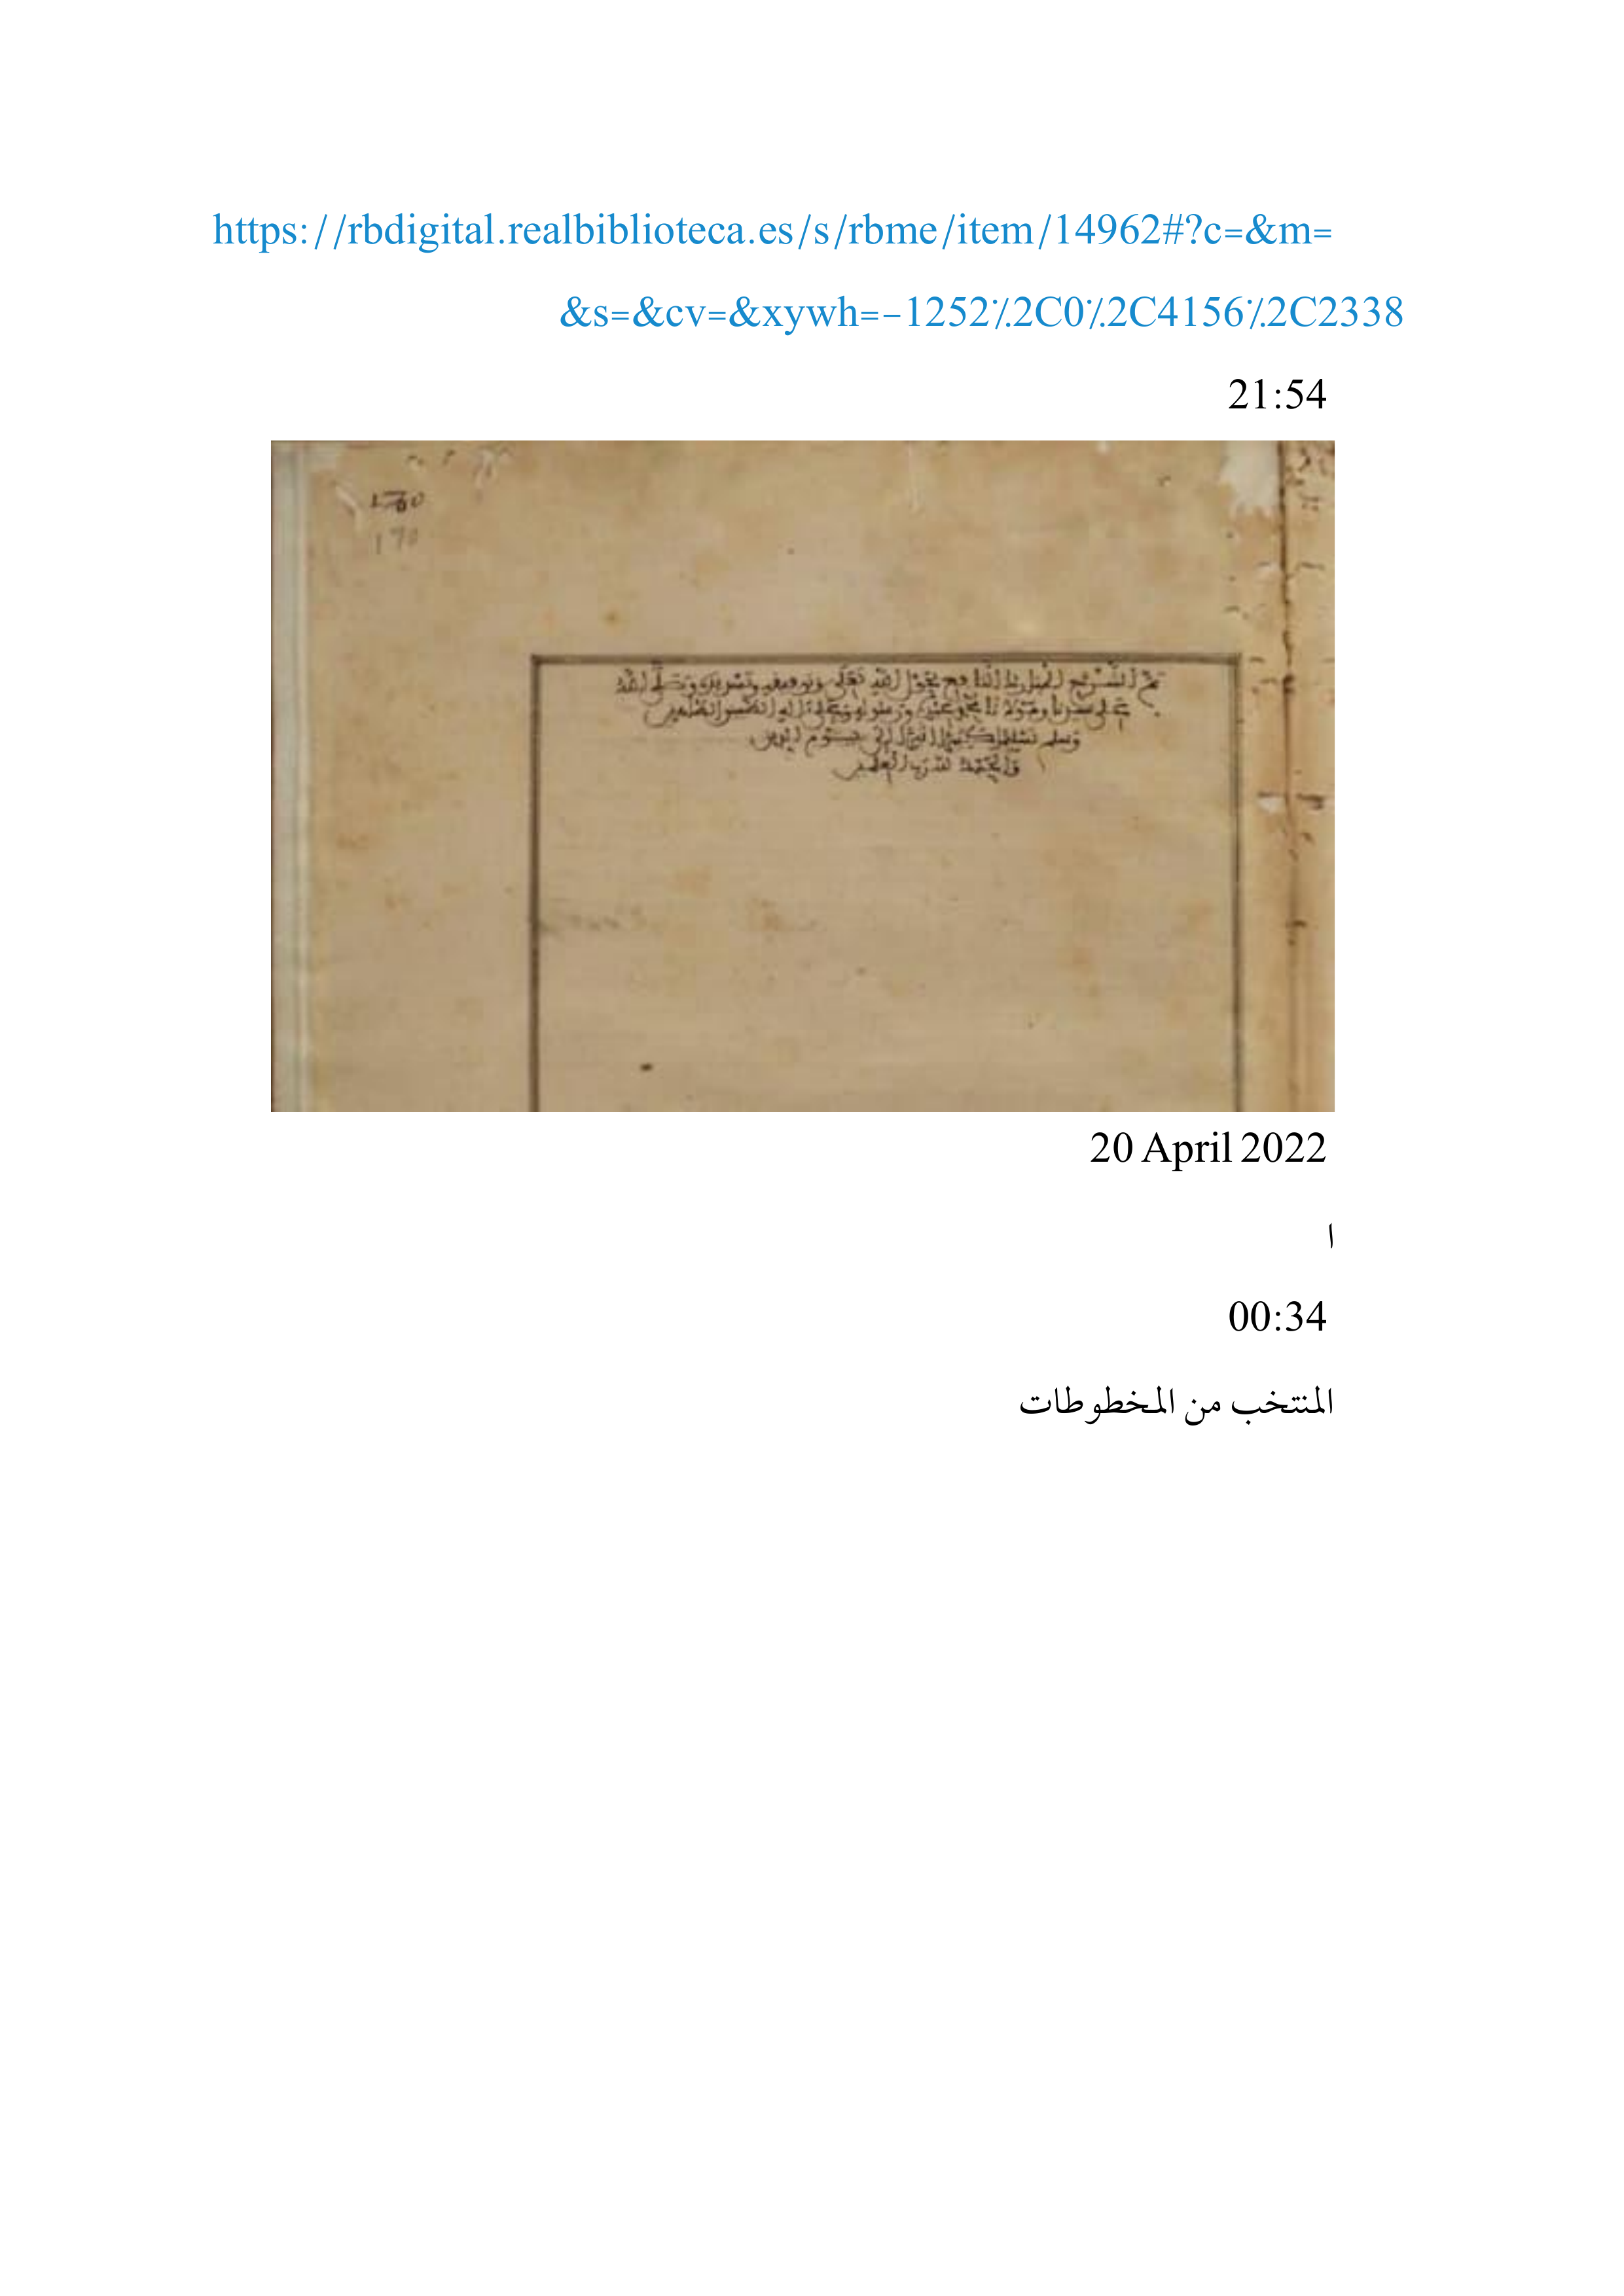 https://rbdigital.realbiblioteca.es/s/rbme/item/14962#?c=&m=
&s=&cv=&xywh=-1252%2C0%2C4156%2C2338
21:54
170
تم الشرح المبارك النافع بحول الله تعلى وتوفيقه وتسديده وصلى الله
على سيدنا ومولانا محمد عبده ورسوله وعلى آله
وسلم تسليما كثيرا أثيرا إلى يوم الدين
والحمد لله رب العلمين
20 April 2022
ا
00:34
المنتخب من المخطوطات